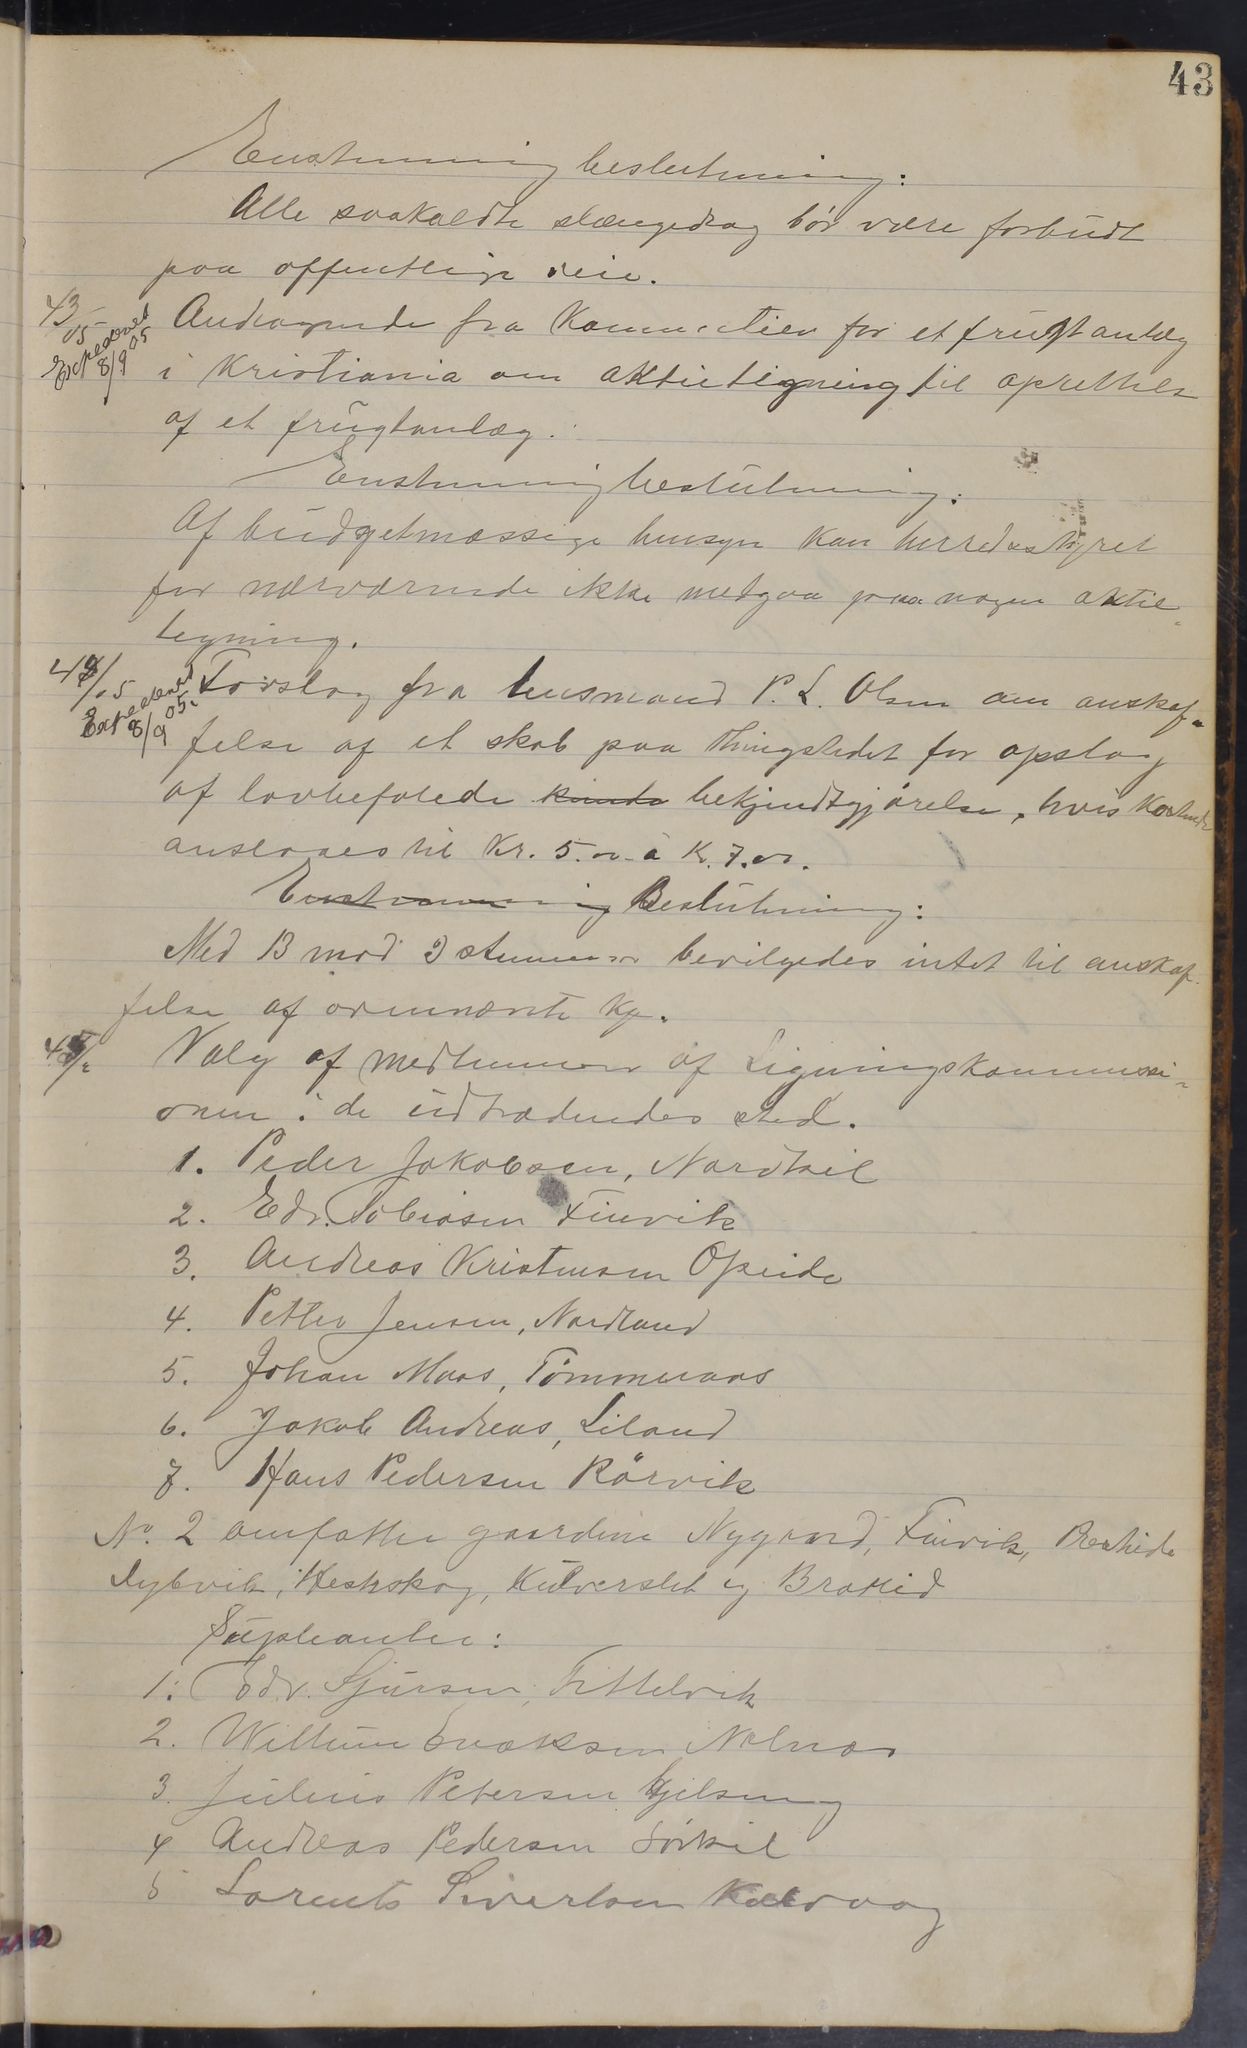 43
Enstemmig beslutning:
Alle saakaldte slængedrag bör være forbudt
paa offentlige veie.
43/05 Andragende fra Kommiteen for et frugtanlæg
Expederet 8/9 05
i Kristiania om aktietegning til oprettelse
af et frugtanlæg.
Enstemmig beslutning:
Af budgetmæssige hensyn kan herredsstyret
for nærværende ikke medgaa paa nogen aktie-
tegning.
44/05 Forslag fra lensmand P. L. Olsen om anskaf-
Expederet 8/9 05.
felse af et skab paa thingstedet for opslag
af lovbefalede kunds bekjendtgjörelse, hvis kostende
ansloges til Kr. 5.00 à K. 7.00.
Enstemmig Beslutning:
Med 13 mod 3 stemmer bevilgedes intet til anskaf-
felse af ovennævnte
45/ Valg af medlemmer af Ligningskommissi-
onen i de udtrædendes sted.
1. Peder Jakobsen, Nordkil
2. Edv. Tobiasen Finvik
3. Andreas Kristensen Opeide
4. Petter Jensen, Nordland
5. Johan Maas, Tömmeraas
6. Jakob Andreas, Liland
7. Hans Pedersen Rörvik
No. 2 omfatter gaardene Nygaard, Finvik,
Dybvik, Hestskog, Kulverslet og Brattlid
Supleanter:
1. Edv. Sjursen, Fittelvik
2. Willum Evaksen
3. Julius Petersen
4 Andreas Pedersen Sörkil
5 Lorents Sivertsen Kaldvaag